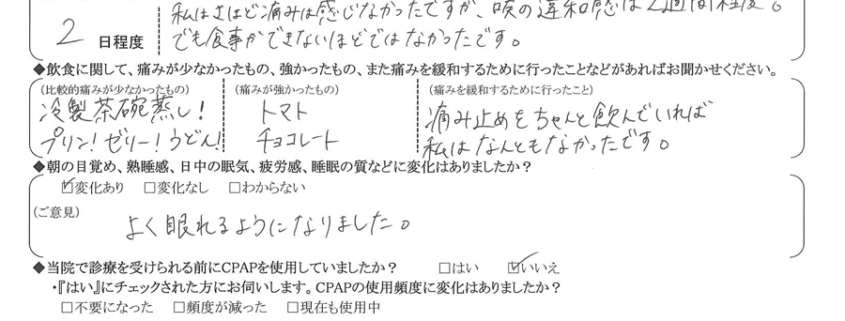 私はさほど痛みは感じなかったですが、喉の違和感は2週間程度。
2 日程度
でも食事ができないほどではなかったです。
◆飲食に関して、痛みが少なかったもの、強かったもの、また痛みを緩和するために行ったことなどがあればお聞かせください。
(比較的痛みが少なかったもの) (痛みが強かったもの) (痛みを緩和するために行ったこと)
冷製茶碗蒸し! トマト 痛み止めをちゃんと飲んでいれば
プリン!ゼリー!うどん! チョコレート 私はなんともなかったです。
◆朝の目覚め、熟睡感、日中の眠気、疲労感、睡眠の質などに変化はありましたか?
☑変化あり □変化なし □わからない
(ご意見)
よく眠れるようになりました。
◆当院で診療を受けられる前にCPAPを使用していましたか? □はい ☑いいえ
・『はい』にチェックされた方にお伺いします。CPAPの使用頻度に変化はありましたか?
□不要になった □頻度が減った □現在も使用中